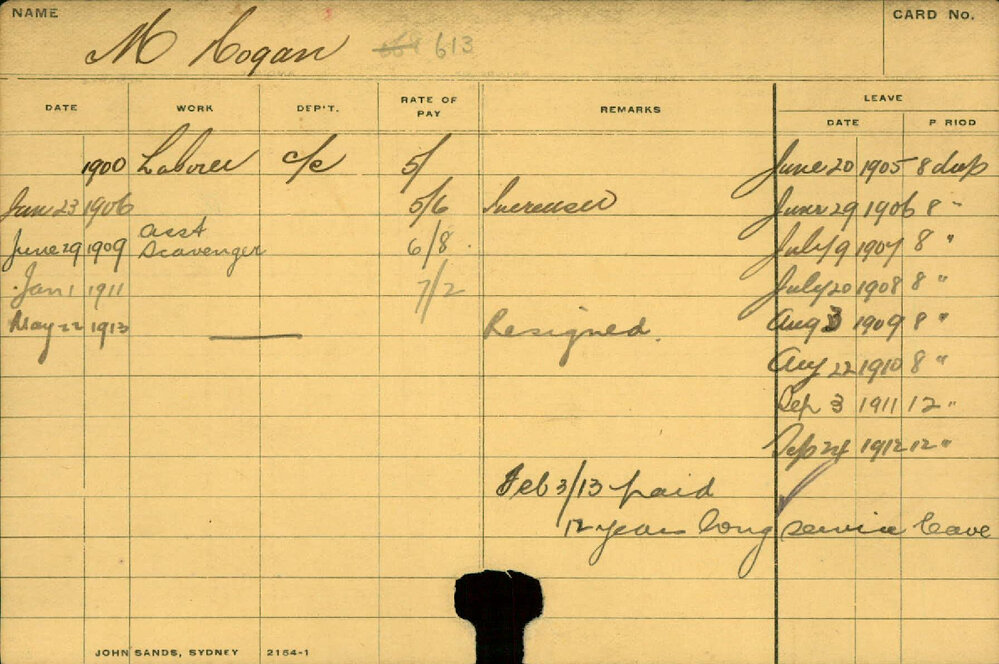 NAME CARD No.
M Hogan 613
DATE WORK DEP'T. RATE OF PAY REMARKS LEAVE
DATE P RIOD
1900 Laborer c/c 5/ June 20 1905 8 days
Jan 23 1906 5/6 Increased June 29 1906 8 "
June 29 1909 asst Scavenger 6/8 July 9 1907 8 "
Jan 1 1911 7/2 July 20 1908 8 "
May 22 1913 Resigned. Aug 3 1909 8 "
Aug 22 1910 8 "
Sep 3 1911 12 "
Sep 24 1912 12 "
Feb 3/13 paid
12 years long service leave
JOHN SANDS, SYDNEY 2154-1